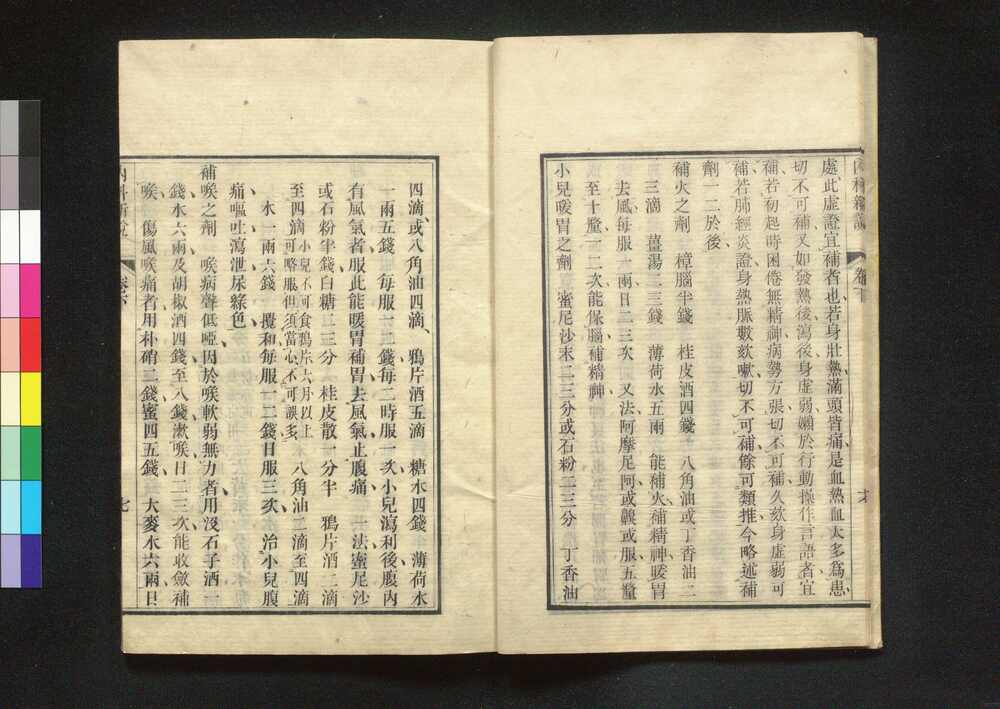 處此虛證宜補者也若身壯熱滿頭皆痛是血熱血太多爲患
切不可補又如發熱後瀉後身虛弱嬾於行動操作言語者宜
補若初起時困倦無精神病勢方張切不可補久欬身虛弱可
補若肺經炎證身熱脈數欬嗽切不可補餘可類推今略述補
劑一二於後
補火之劑 樟腦半錢 桂皮酒四錢 八角油或丁香油二
三滴 薑湯二三錢 薄荷水五兩 能補火補精神暖胃
去風每服一兩日二三次 又法阿摩尼阿或礦或服五釐
至十釐一二次能保腦補精神
小兒暖胃之劑 蜜尼沙末二三分或石粉二三分 丁香油
四滴或八角油四滴 鴉片酒五滴 糖水四錢 薄荷水
一兩五錢 每服一二錢每二時服一次小兒瀉利後腹內
有風氣者服此能暖胃補胃去風氣止腹痛 一法蜜尼沙
或石粉半錢白糖二三分 桂皮散一分半 鴉片酒二滴
至四滴小兒不可食鴉片六月以上可略服但須當心不可誤多 八角油二滴至四滴
水一兩六錢 攪和每服一二錢日服三次 治小兒腹
痛嘔吐瀉泄屎綠色
補喉之劑 喉病聲低啞因於喉軟弱無力者用沒石子酒一
錢水六兩及胡椒酒四錢至八錢漱喉日二三次能收斂補
喉 傷風喉痛者用朴硝二錢蜜四五錢 大麥水六兩日
內科新說 卷下 七